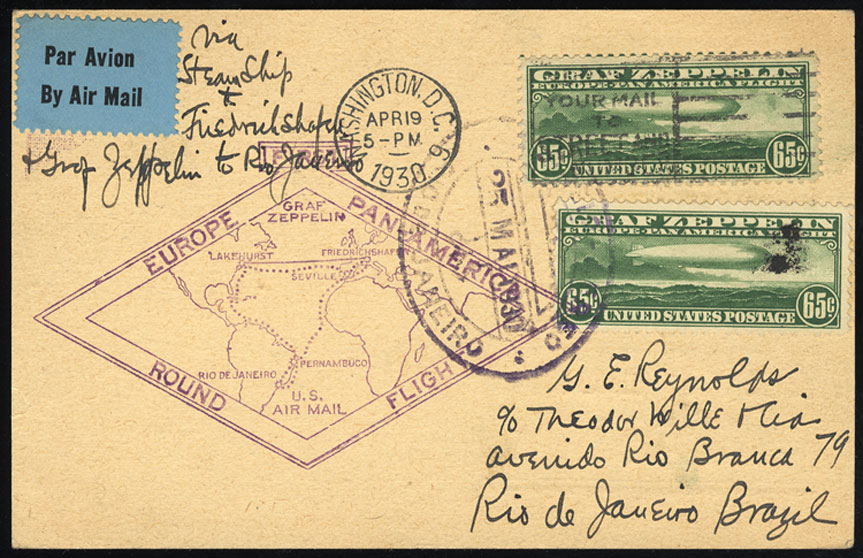 Par Avion
By Air Mail
via
Steamship
+
Friedrichshafen
+ Graf Zeppelin to Rio Janeiro
WASHINGTON, D.C.
APR 19
5-PM
1930
GRAF ZEPPELIN
EUROPE-PAN AMERICA FLIGHT
YOUR MAIL
TO
STREET AND
65¢ 65¢
UNITED STATES POSTAGE
GRAF ZEPPELIN
EUROPE-PAN AMERICA FLIGHT
65¢ 65¢
UNITED STATES POSTAGE
25 MAI 1930
RIO DE JANEIRO
FIRST
EUROPE PAN-AMERICAN
ROUND FLIGHT
GRAF
ZEPPELIN
LAKEHURST
FRIEDRICHSHAF
SEVILLE
PERNAMBUCO
RIO DE JANEIRO
U.S.
AIR MAIL
G. E. Reynolds
% Theodor Wille & Cia
avenido Rio Branca 79
Rio de Janeiro Brazil